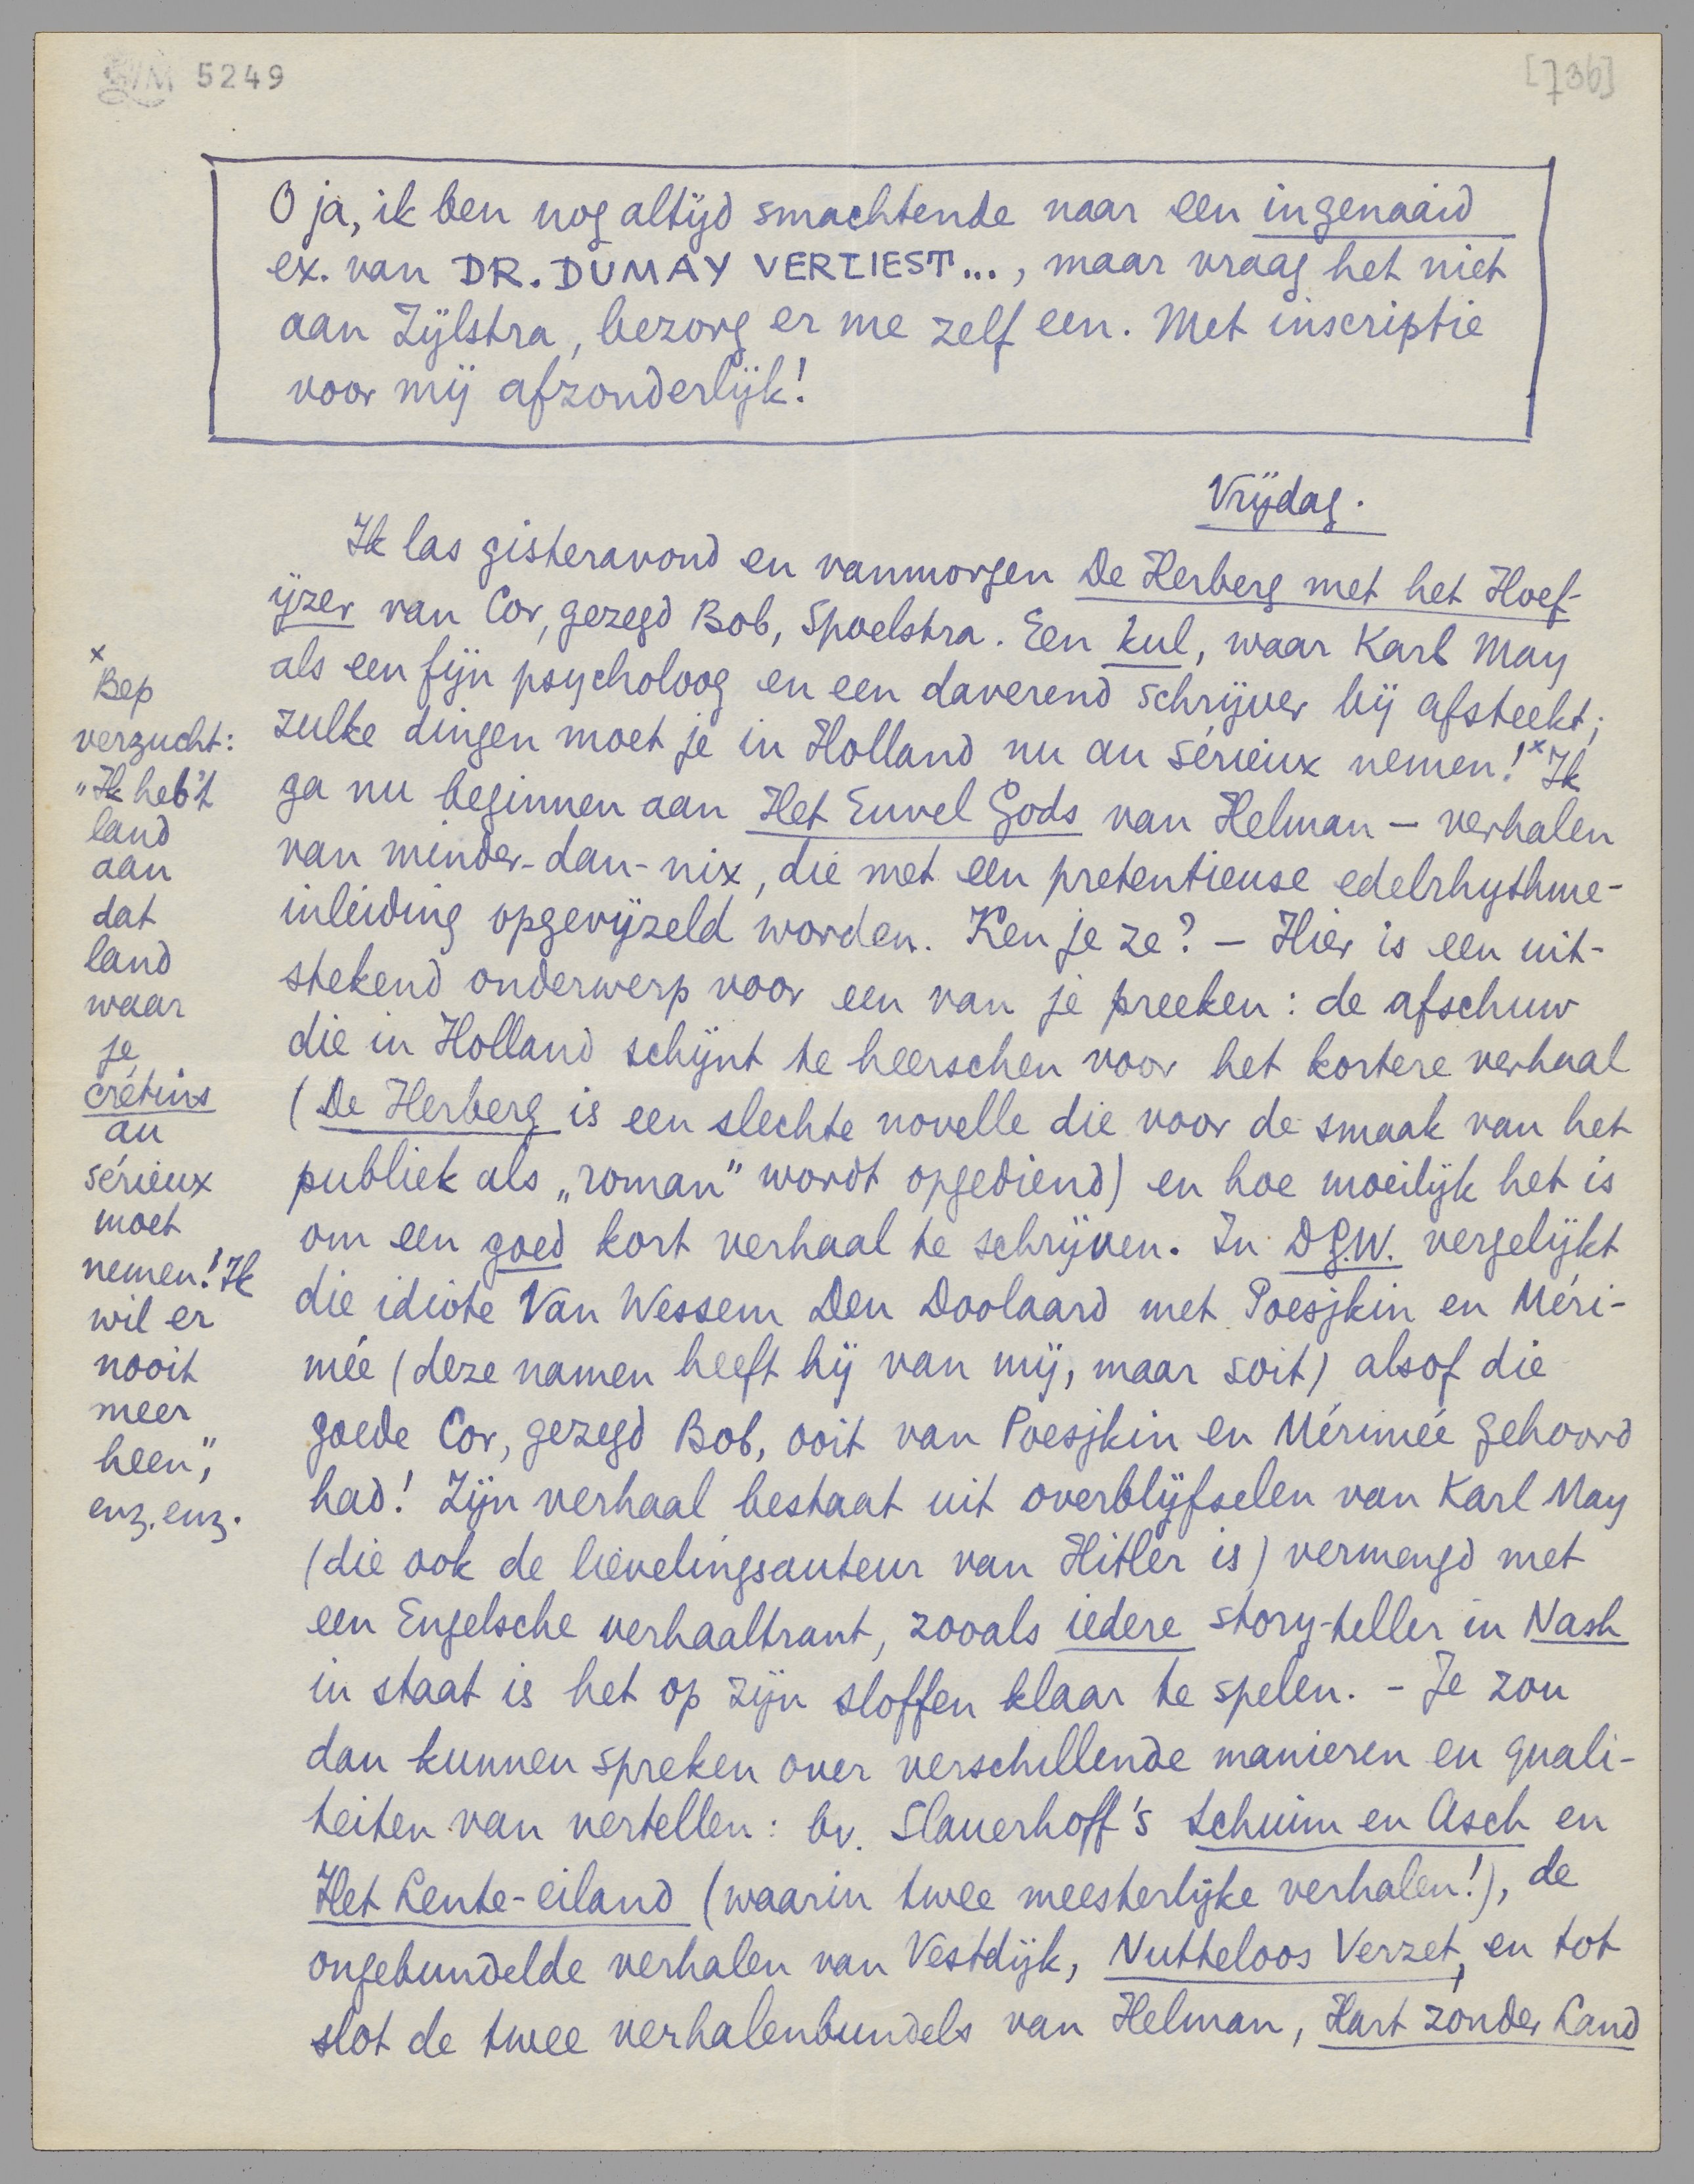 5249
[736]
O ja, ik ben nog altijd smachtende naar een ingenaaid
ex. van DR. DUMAY VERLIEST..., maar vraag het niet
aan Zijlstra, bezorg er me zelf een. Met inscriptie
voor mij afzonderlijk!
Vrijdag.
Ik las gisteravond en vanmorgen De Herberg met het Hoef-
ijzer van Cor, gezegd Bob, Spoelstra. Een kul, waar Karl May
als een fijn psycholoog en een daverend schrijver bij afsteekt;
zulke dingen moet je in Holland nu au sérieux nemen!× Ik
ga nu beginnen aan Het Euvel Gods van Helman – verhalen
van minder-dan-nix, die met een pretentieuse edelrhythme-
inleiding opgevijzeld worden. Ken je ze? – Hier is een uit-
stekend onderwerp voor een van je preeken: de afschuw
die in Holland schijnt te heerschen voor het kortere verhaal
(De Herberg is een slechte novelle die voor de smaak van het
publiek als „roman" wordt opgediend) en hoe moeilijk het is
om een goed kort verhaal te schrijven. In D.G.W. vergelijkt
die idiote Van Wessem Den Doolaard met Poesjkin en Méri-
mée (deze namen heeft hij van mij, maar soit) alsof die
goede Cor, gezegd Bob, ooit van Poesjkin en Mérimée gehoord
had! Zijn verhaal bestaat uit overblijfselen van Karl May
(die ook de lievelingsauteur van Hitler is) vermengd met
een Engelsche verhaaltrant, zooals iedere story-teller in Nash
in staat is het op zijn sloffen klaar te spelen. - Je zou
dan kunnen spreken over verschillende manieren en quali-
teiten van vertellen: bv. Slauerhoff's Schuim en Asch en
Het Lente-eiland (waarin twee meesterlijke verhalen!), de
ongebundelde verhalen van Vestdijk, Nutteloos Verzet, en tot
slot de twee verhalenbundels van Helman, Hart zonder Land
×
Bep
verzucht:
„Ik heb 't
land
aan
dat
land
waar
je
crétins
au
sérieux
moet
nemen! Ik
wil er
nooit
meer
heen",
enz. enz.